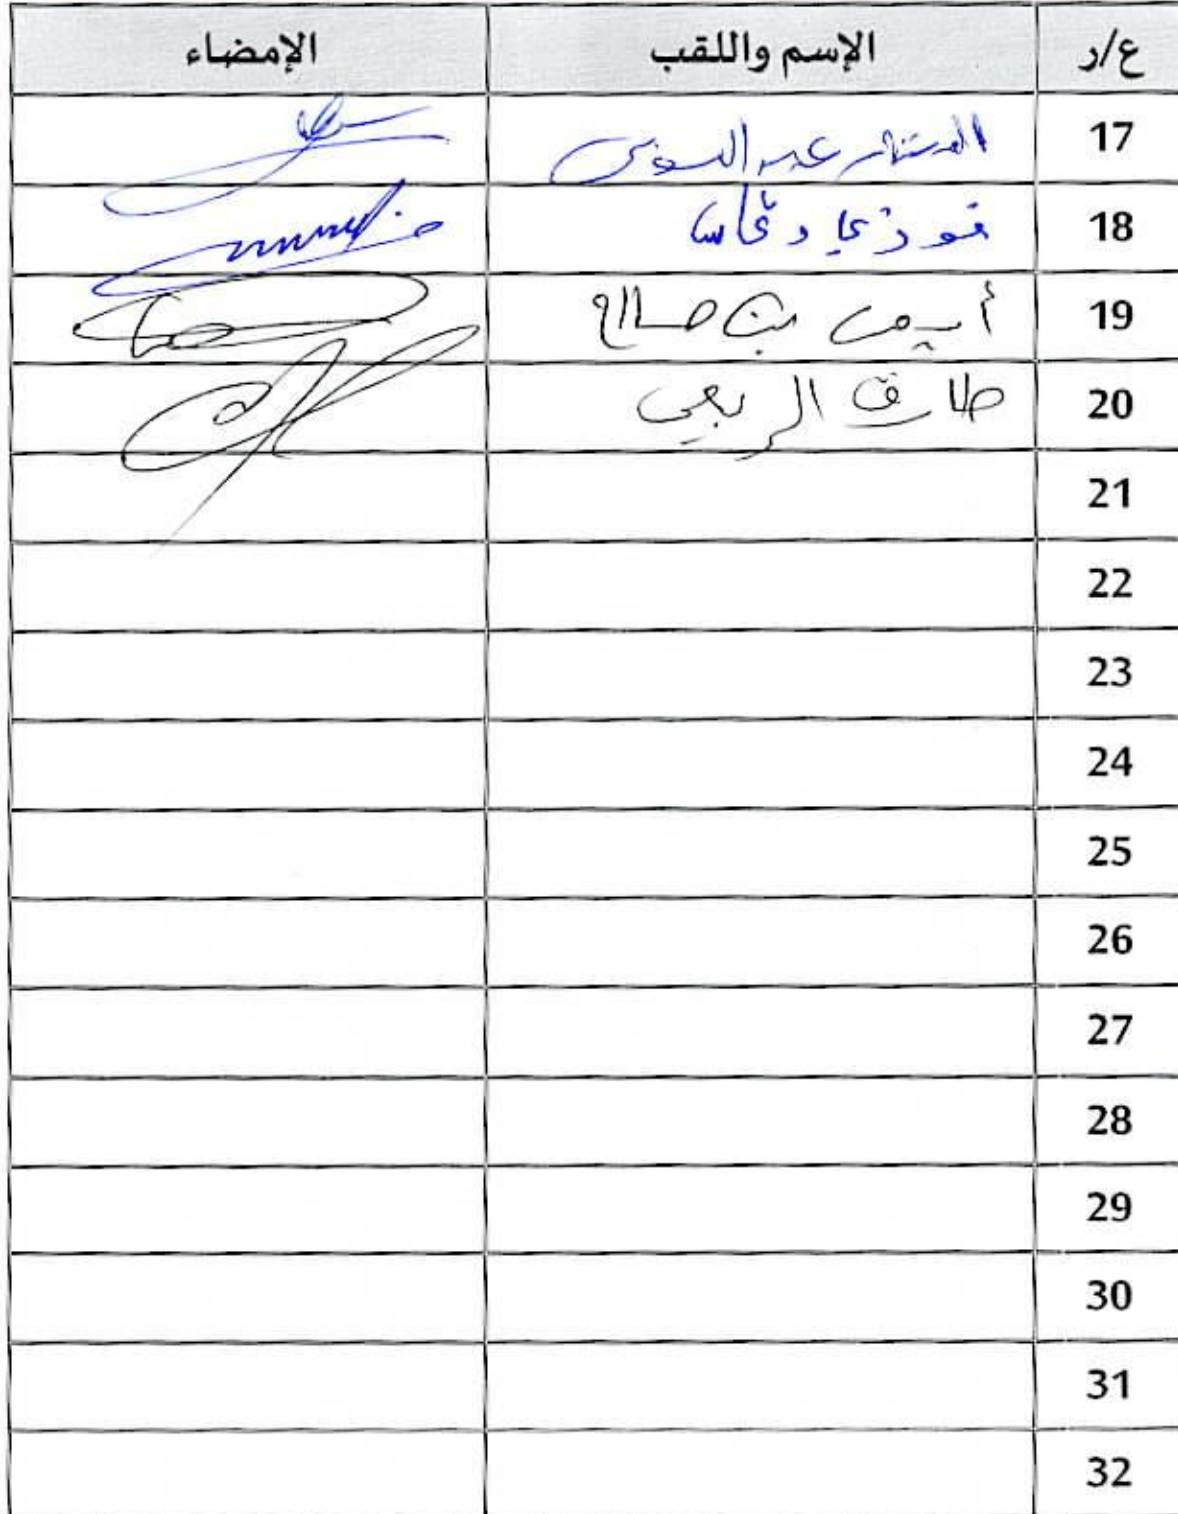 ع/ر الإسم واللقب الإمضاء
17
18 فوزي دغاس
19 أيمن بن صالح
20 طارق الربعي
21
22
23
24
25
26
27
28
29
30
31
32